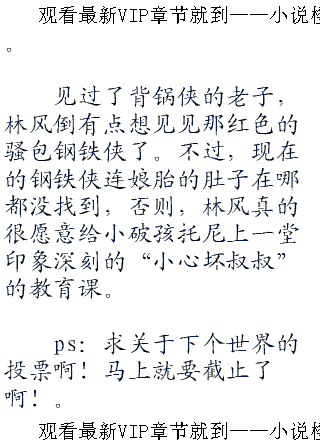 观看最新VIP章节就到——小说
。
见过了背锅侠的老子，
林风倒有点想见见那红色的
骚包钢铁侠了。不过，现在
的钢铁侠连娘胎的肚子在哪
都没找到，否则，林风真的
很愿意给小破孩托尼上一堂
印象深刻的“小心坏叔叔”
的教育课。
ps：求关于下个世界的
投票啊！马上就要截止了
啊！。
观看最新VIP章节就到——小说